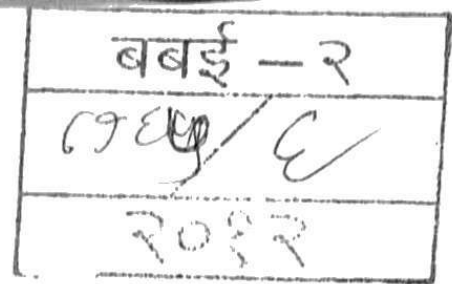 बबई - २
७९६५/६
२०१२